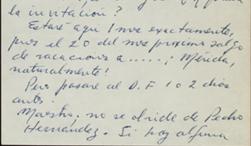 la invitación?
Estaré aquí 1 mes exactamente,
pues el 20 del mes próximo salgo
de vacaciones a .....¡ Mérida,
naturalmente!
Pero pasaré al D.F. 1 o 2 días
antes.
Maestro, no se olvide de Pedro
Hernández. Si hay alguna